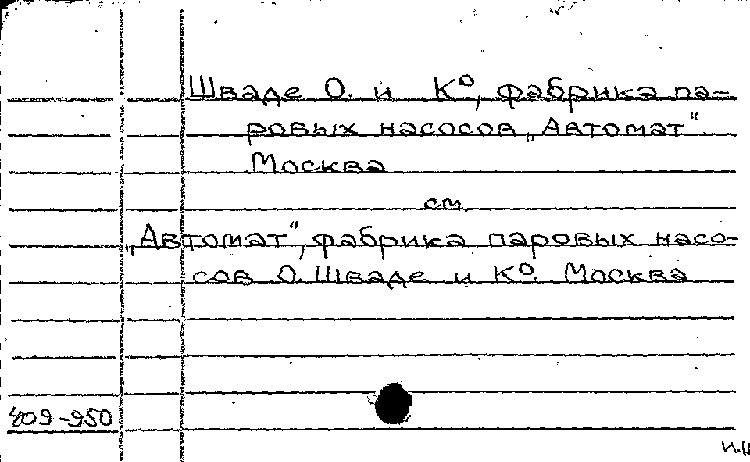 Шваде О. и К⁰, фабрика па-
ровых насосов „Автомат".
Москва
см.
„Автомат", фабрика паровых насо-
сов О. Шваде и К⁰. Москва
409-950